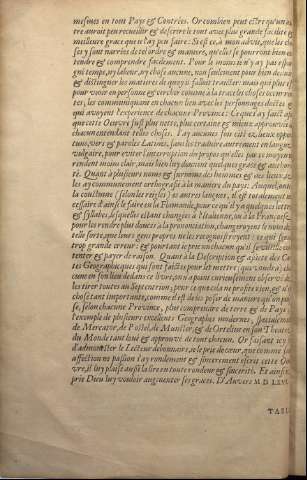 mesmes en tout Pays & Contrées. Or combien peut estre qu'un au
tre auroit peu recueillir & descrire le tout avec plus grande facilité &
meilleure grace que n'ay peu faire: Si est ce, à mon advis, que les cho
ses y sont narrées de tel ordre & maniere, qu'elles se pourront bien en
tendre & comprendre facilement. Pour le moins je n'ay pas espar
gné temps, ny labeur, ny chose aucune, non seulement pour bien
& distinguer les matieres de quoy il falloit traicter: mais aussi
pour voir en personne & cercher comme à la trace les choses
tes, les communiquant en chacun lieu avec les personnages doctes &
qui avoyent l'experience de chacune Province: Lequel ay faict
que ceste Oeuvre fust plus nette, plus certaine & mieux approuvée
chacun entendant telles choses. J'ay aucunes fois cité
vers & paroles Latines, sans les traduire autrement en langue
vulgaire, pour eviter l'interruption du propos
rendent moins clair, mais bien luy donnent quelque grace & authori
té. Quant à plusieurs noms & surnoms des hommes & des lieux, je
les ay communement orthografié à la maniere du pays: Auquel, ont
la coustume (selon les regles) és autres langues, il est totalement ne
cessaire d'ainsi le faire en la Flamande, pour ce qu'il y a quelques lettres
& syllabes, lesquelles estant changées à l'Italienne, ou à la Françoise,
pour les rendre plus douces à la prononciation, changeroyent le nom de
telle sorte, que leurs gens propres ne les recognoistroyent: ce qui
trop grande erreur: & pourtant je prie un chacun qu'il se vueille con
tenter & payer de raison. Quant à la Description & assiete des Car
tes Geographiques qui sont faictes pour les mettre (que voudra)
cune en son lieu dedans ce livre, jamais
les tirer toutes au Septentrion, pour ce que cela ne profite rien, & n'est
chose tant importante, comme il est de les poser de maniere qu'on puis
se, selon chacune Province, plus comprendre de terre & de Pays: à
l'exemple de plusieurs excellents Geographes modernes, specialement
de Mercator, de Postel, de Munster, & de Ortelius en son Theatre
du Monde tant loué & approuvé de tout chacun. Or faisant icy
d'admonester le Lecteur debonnaire, je le prie de cœur, que comme sans
affection ne passion j'ay rondement & sincerement escrit ceste Oeu
vre, il luy plaise aussi la lire en toute rondeur & sincerité. Et ainsi
prie Dieu luy vouloir augmenter ses graces. D'Anvers M.D.LXVI.
TABLE